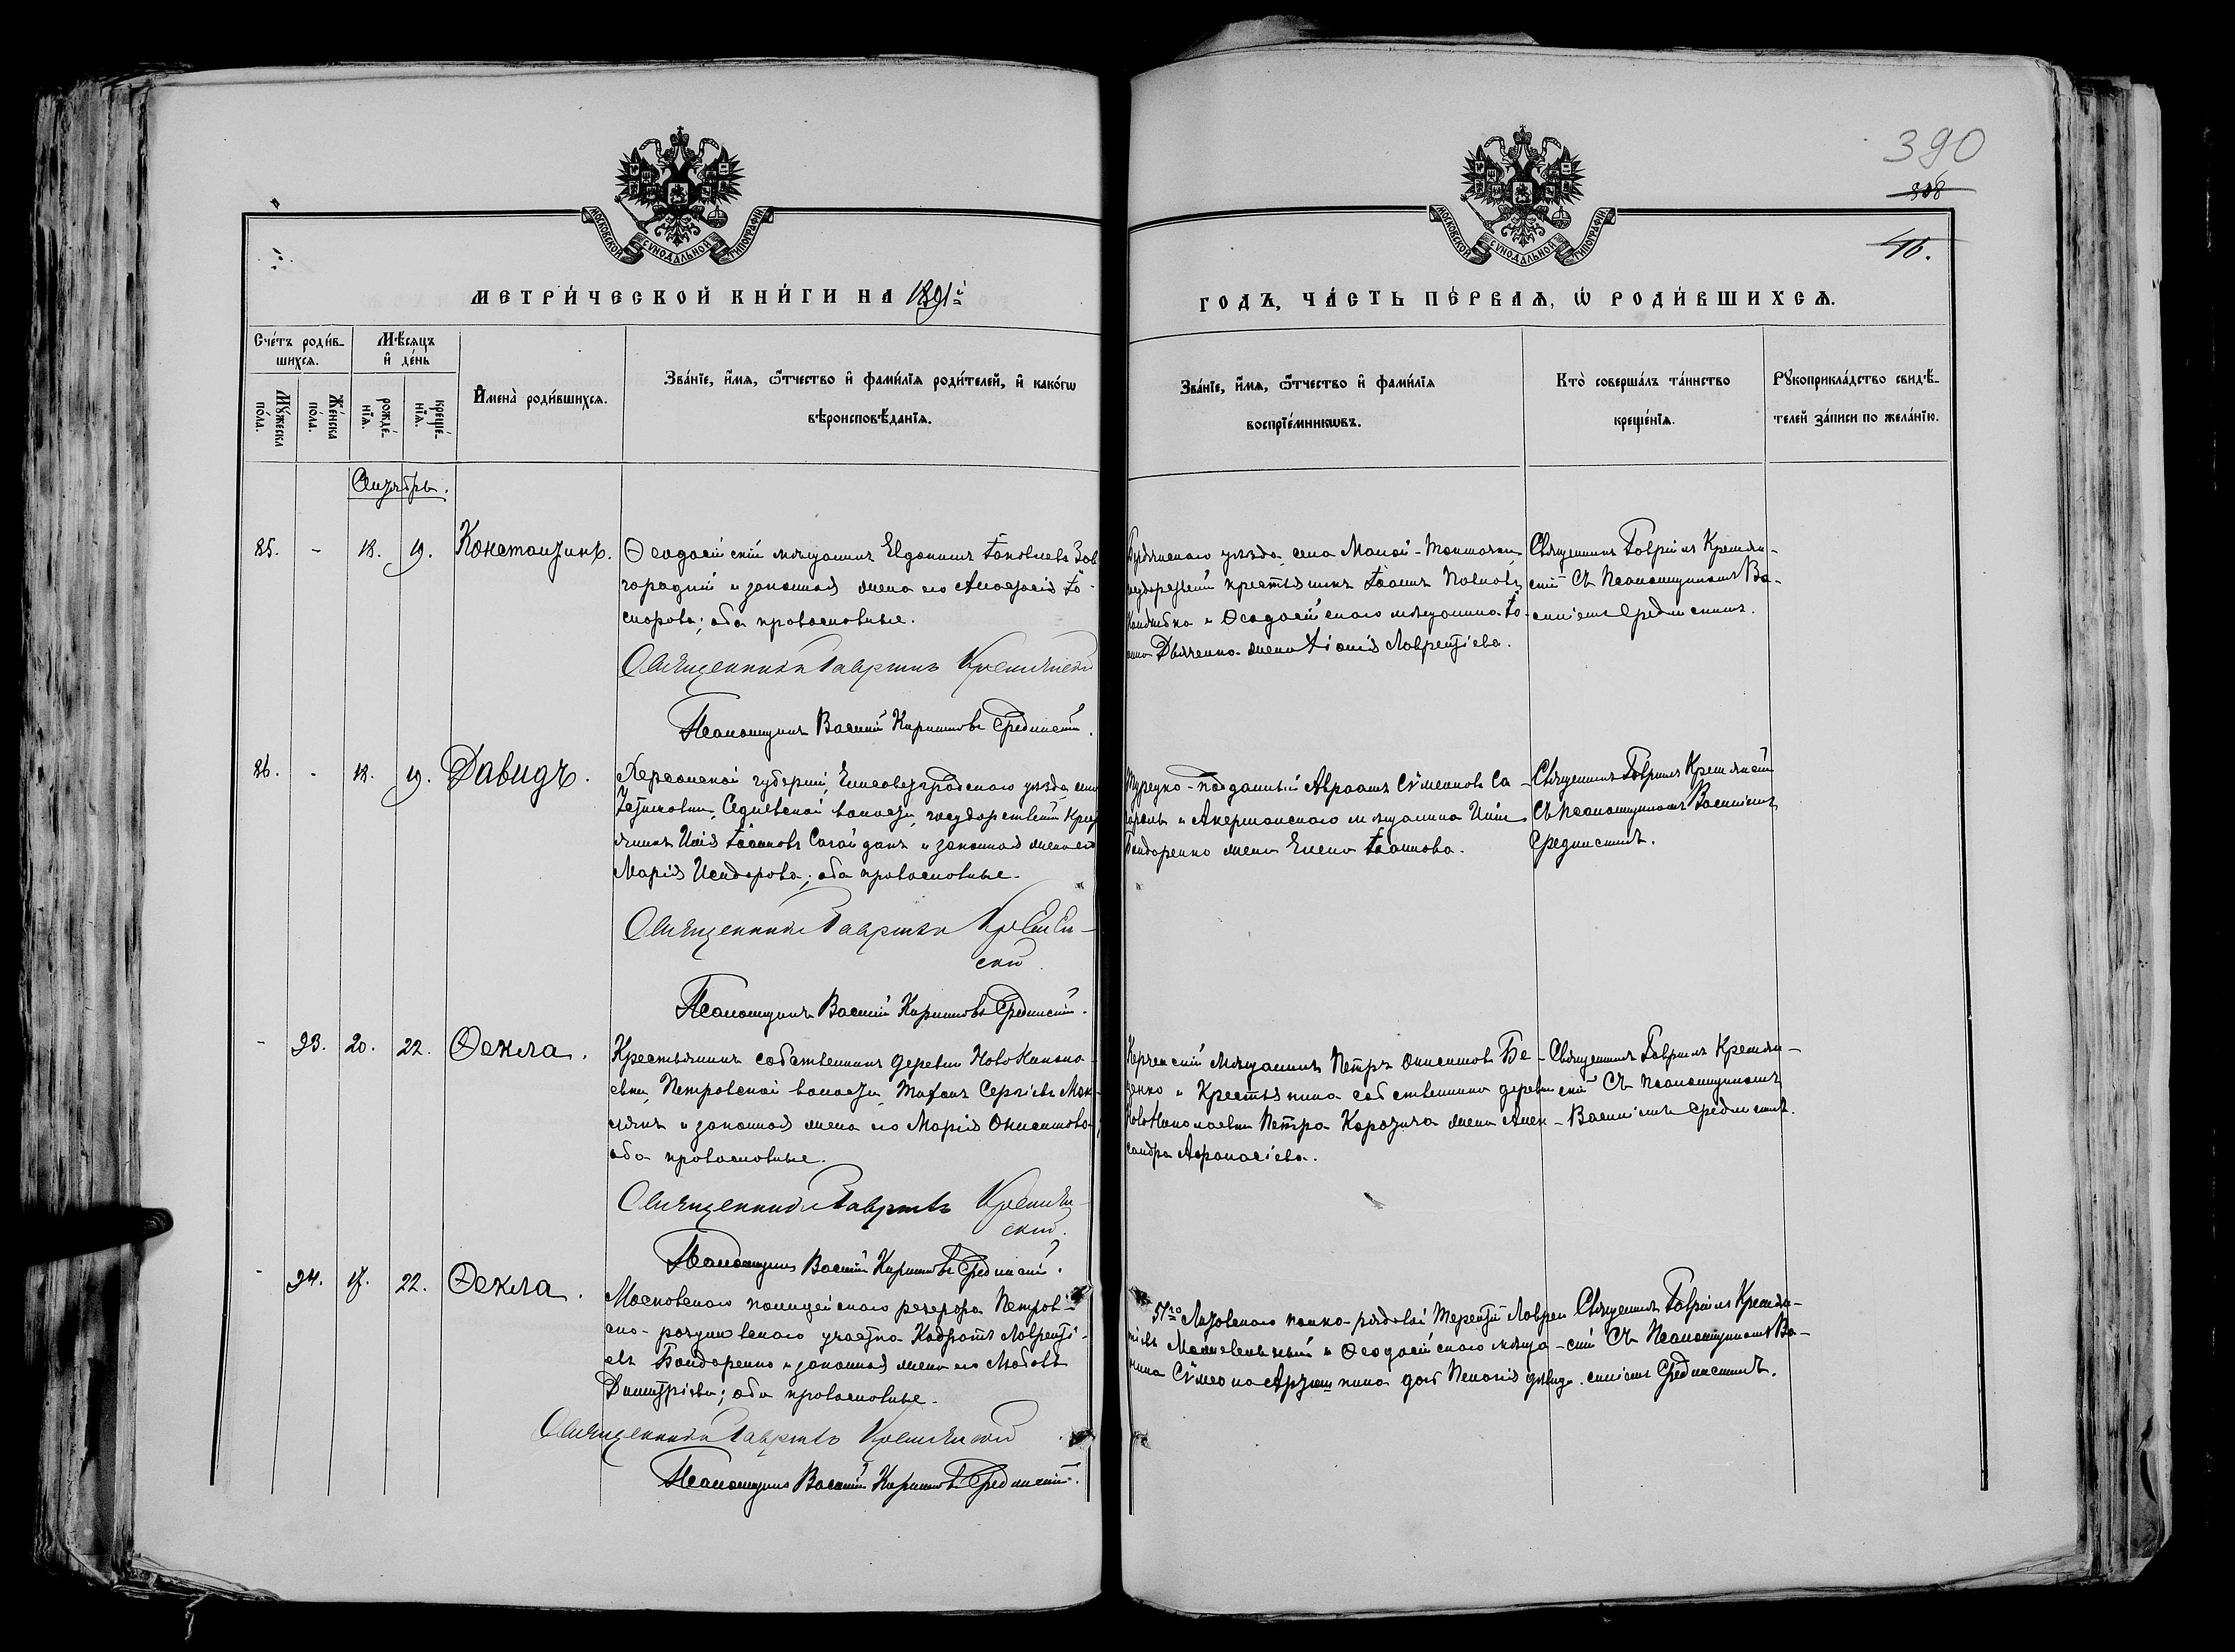 390
308
46.
МОСКОВСКОЙ СѴНОДАЛЬНОЙ ТИПОГРАФІИ
МОСКОВСКОЙ СѴНОДАЛЬНОЙ ТИПОГРАФІИ
МЕТРИ́ЧЕСКОЙ КНИ́ГИ НА 1891й
ГОДЪ, ЧА́СТЬ ПЕ́РВАѦ, Ѡ҆ РОДИ́ВШИХСѦ.
Сче́тъ роди́в-
шихсѧ.
Мѣ́сѧцъ
и҆ де́нь
Мꙋ́жеска
по́ла.
Же́нска
по́ла.
рожде́-
нїѧ.
креще́-
нїѧ.
И҆мена̀ роди́вшихсѧ.
Зва́нїе, и҆́мѧ, ѻ҆́тчество и҆ фами́лїѧ роди́телей, и҆ како́гѡ
вѣроисповѣ́данїѧ.
Зва́нїе, и҆́мѧ, ѻ҆́тчество и҆ фами́лїѧ
воспрїе́мникѡвъ.
Кто̀ соверша́лъ та́инство
креще́нїѧ.
Рꙋкоприкла́дство свидѣ́-
телей за́писи по жела́нїю.
Октябрь.
85. - 18. 19. Константинъ.
Ѳеодосійскій мѣщанинъ Евдокимъ Іаковлевъ Зав
городній и законная жена его Анастасія Іо-
сифова; оба православные.
Священникъ Гавріилъ Кремянскій
Псаломщикъ Василій Кирилловъ Срединскій.
уѣзда, села Малой-Токмачки,
крестьянинъ Іоаннъ Павловъ
и Ѳеодосійскаго мѣщанина Іо-
анна Дьяченко жена Лаврентіева.
Священникъ Гавріилъ Кремян-
скій съ Псаломщикомъ Ва-
силіемъ Срединскимъ.
86. - 18. 19. Давидъ.
Херсонской губерніи, Елисаветградскаго уѣзда села
волости, государственный крест
янинъ Илія Іоанновъ Сагайдакъ и законная жена его
Марія Исидорова; оба православные.
Священникъ Гавріилъ Кремян-
скій
Псаломщикъ Василій Кирилловъ Срединскій.
Турецко-подданный Авраамъ Сѵмеоновъ Са-
и Акерманскаго мѣщанина Иліи
Бондаренко жена Елена Іоаннова.
Священникъ Гавріилъ Кремянскій
Съ псаломщикомъ Василіемъ
Срединскимъ.
- 93. 20. 22. Ѳекла.
Крестьянинъ собственникъ деревни Ново Никола-
евки, Петровской волости, Сергіевъ
и законная жена его Марія Онисимова
оба православные.
Священникъ Гавріилъ Кремян-
скій.
Псаломщикъ Василій Кирилловъ Срединскій.
Керченскій Мѣщанинъ Петръ Онисимовъ Бе-
денко и Крестьянина собственника деревни
Ново Николаевки Петра жена Алек-
сандра Аѳанасіева.
Священникъ Гавріилъ Кремян-
скій Съ Псаломщикомъ
Василіемъ Срединскимъ.
- 94. 17. 22. Ѳекла.
Московскаго полицейскаго резерва Петров-
ско-разумовскаго участка Кодратъ Лавренті-
евъ Бондаренко и законная жена его Любовь
Димитріева; оба православные.
Священникъ Гавріилъ Кремянскій
Псаломщикъ Василій Кирилловъ Срединскій.
полка рядовой Терентій Лаврен
тіевъ и Ѳеодосійскаго мѣща-
нина Сѵмеона дочь дѣвица.
Священникъ Гавріилъ Кремян-
скій Съ Псаломщикомъ Ва-
силіемъ Срединскимъ.